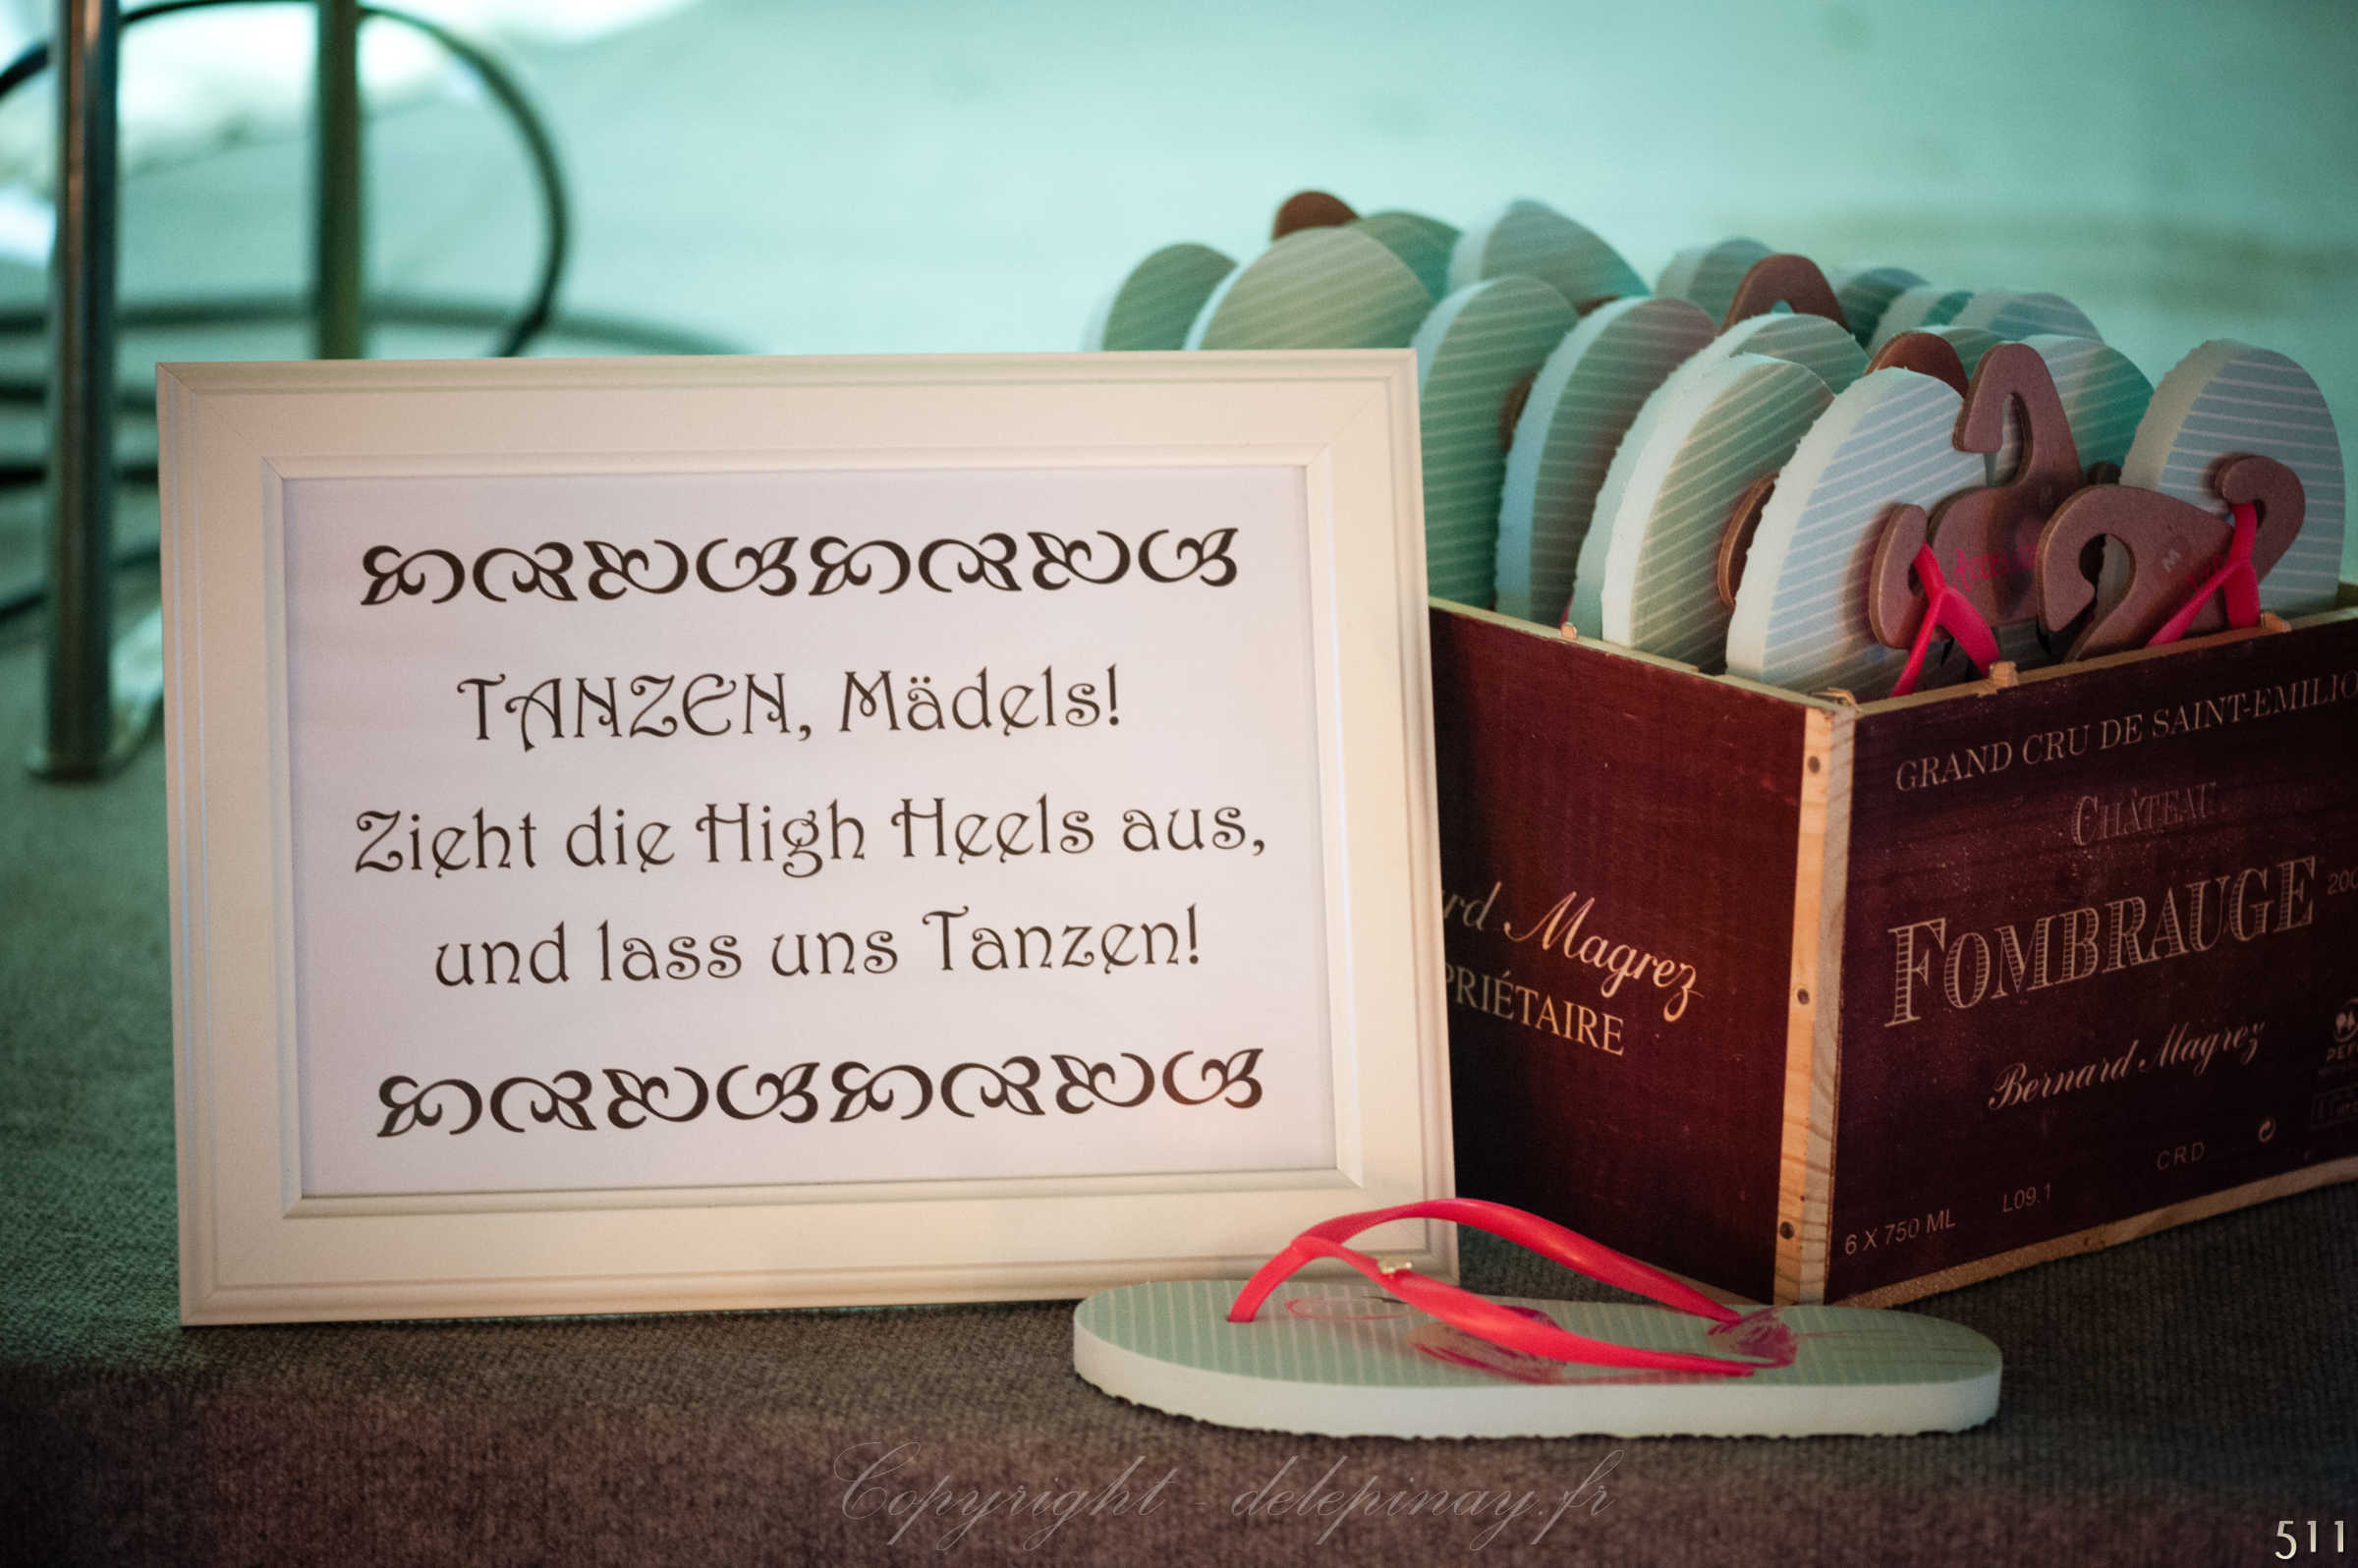 TANZEN, Mädels!
Zieht die High Heels aus,
und lass uns Tanzen!
Magrez
PRIÉTAIRE
GRAND CRU DE SAINT-EMILIO
CHÂTEAU
FOMBRAUGE
200
Bernard Magrez
CRD
6 X 750 ML
L09.1
M
Copyright - delepinay.fr
511